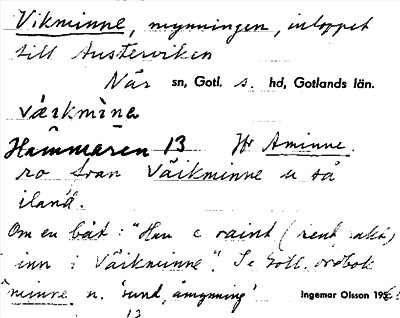 Vikminne, mynningen, inloppet
till Austerviken
När sn, Gotl. s. hd, Gotlands län.
väikmine
Hammaren 13 Jfr Aminne.
ro fran Väikminne u så
iland.
Om en båt: "Han e raint (rent, akt)
inn i Väikminne". Se Gotl. ordbok
minne n. 'sund, åmynning' Ingemar Olsson 195
13